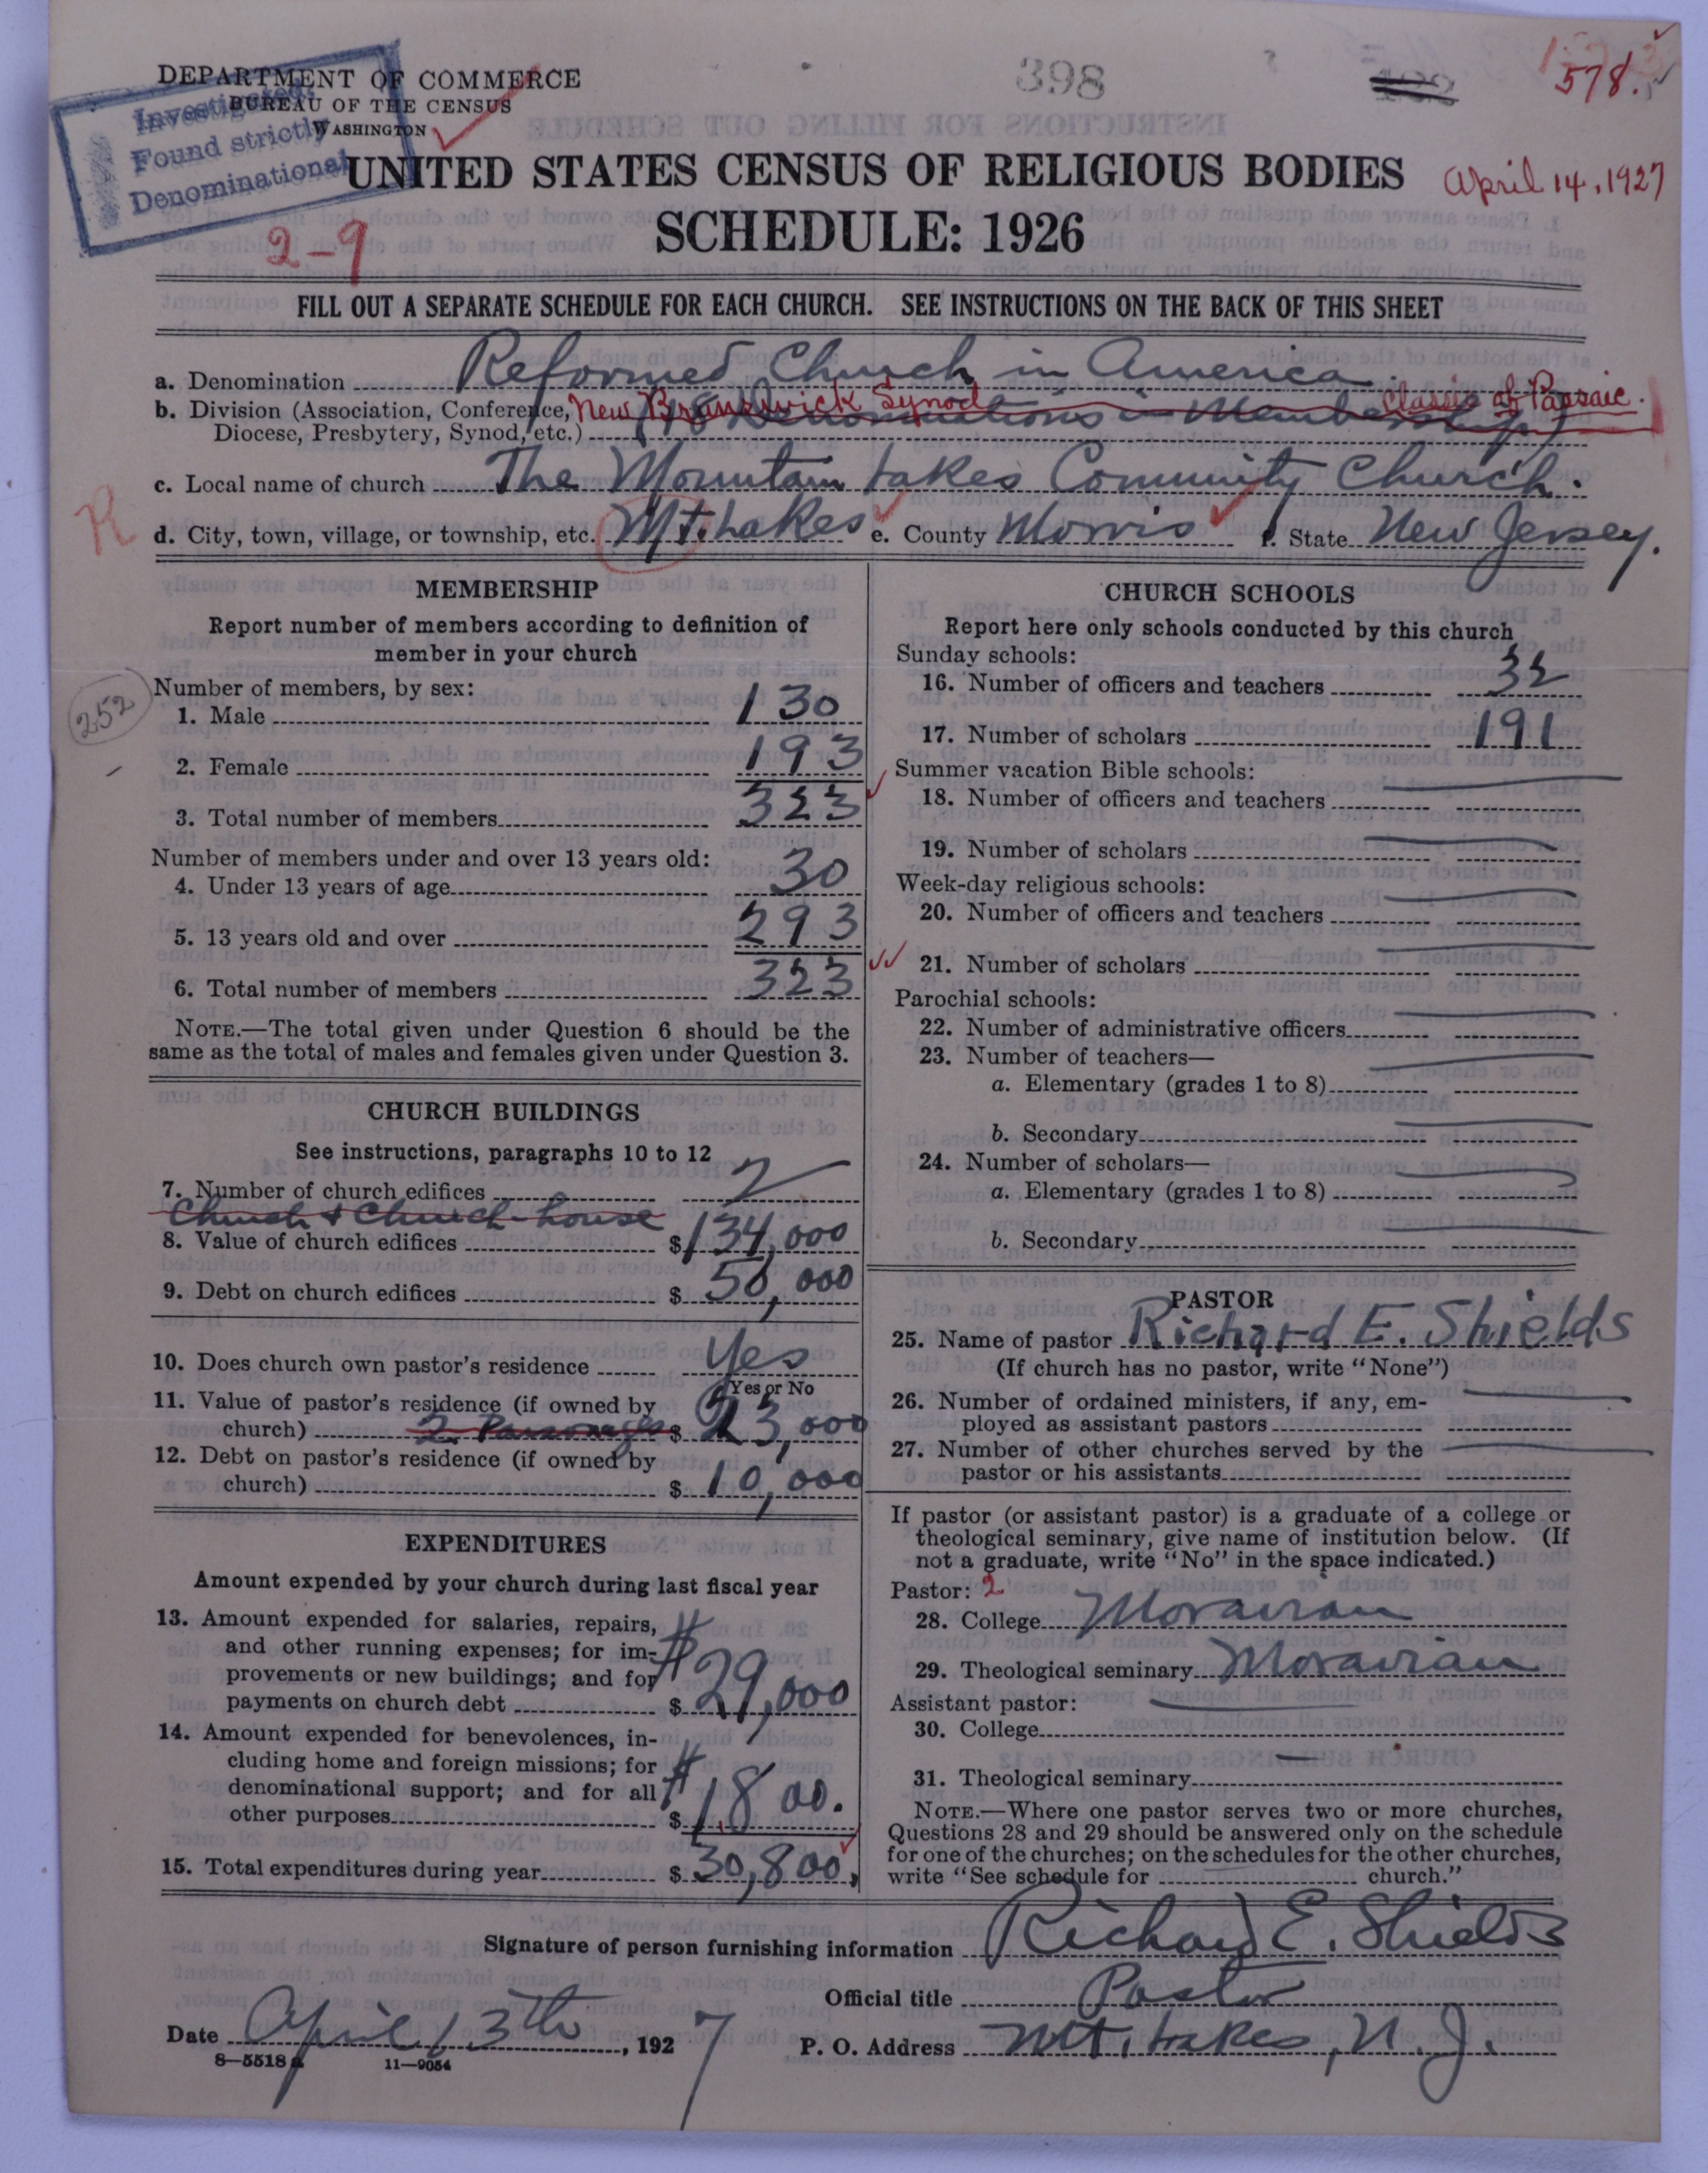 DEPARTMENT OF COMMERCE
BUREAU OF THE CENSUS
WASHINGTON
Investigated.
Found strictly
Denominational
398
578.
UNITED STATES CENSUS OF RELIGIOUS BODIES
April 14, 1927
SCHEDULE: 1926
2-9
FILL OUT A SEPARATE SCHEDULE FOR EACH CHURCH. SEE INSTRUCTIONS ON THE BACK OF THIS SHEET
a. Denomination Reformed Church in America
b. Division (Association, Conference, New Brunswick Synod Classis of Passaic.
Diocese, Presbytery, Synod, etc.) (18 Denominations in Membership)
c. Local name of church The Mountain Lakes Community Church.
R
d. City, town, village, or township, etc. Mt. Lakes e. County Morris f. State New Jersey.
MEMBERSHIP
Report number of members according to definition of
member in your church
252
Number of members, by sex:
1. Male 130
2. Female 193
3. Total number of members 323
Number of members under and over 13 years old:
4. Under 13 years of age 30
5. 13 years old and over 293
6. Total number of members 323
NOTE.—The total given under Question 6 should be the
same as the total of males and females given under Question 3.
CHURCH BUILDINGS
See instructions, paragraphs 10 to 12
7. Number of church edifices 2
Church & Church-house
8. Value of church edifices $134,000
9. Debt on church edifices $ 50,000
10. Does church own pastor's residence Yes
Yes or No
11. Value of pastor's residence (if owned by
church) 2 Parsonages $ 23,000
12. Debt on pastor's residence (if owned by
church) $ 10,000
EXPENDITURES
Amount expended by your church during last fiscal year
13. Amount expended for salaries, repairs,
and other running expenses; for im-
provements or new buildings; and for
payments on church debt $ 29,000
14. Amount expended for benevolences, in-
cluding home and foreign missions; for
denominational support; and for all
other purposes $ 1,800.
15. Total expenditures during year $ 30,800.
CHURCH SCHOOLS
Report here only schools conducted by this church
Sunday schools:
16. Number of officers and teachers 32
17. Number of scholars 191
Summer vacation Bible schools:
18. Number of officers and teachers
19. Number of scholars
Week-day religious schools:
20. Number of officers and teachers
21. Number of scholars
Parochial schools:
22. Number of administrative officers
23. Number of teachers—
a. Elementary (grades 1 to 8)
b. Secondary
24. Number of scholars—
a. Elementary (grades 1 to 8)
b. Secondary
PASTOR
25. Name of pastor Richard E. Shields
(If church has no pastor, write "None")
26. Number of ordained ministers, if any, em-
ployed as assistant pastors
27. Number of other churches served by the
pastor or his assistants
If pastor (or assistant pastor) is a graduate of a college or
theological seminary, give name of institution below. (If
not a graduate, write "No" in the space indicated.)
Pastor: 2
28. College Moravian
29. Theological seminary Moravian
Assistant pastor:
30. College
31. Theological seminary
NOTE.—Where one pastor serves two or more churches,
Questions 28 and 29 should be answered only on the schedule
for one of the churches; on the schedules for the other churches,
write "See schedule for church."
Signature of person furnishing information Richard E. Shields
Official title Pastor
Date April 13th, 1927
P. O. Address Mt. Lakes, N. J.
8—5518a 11—9054